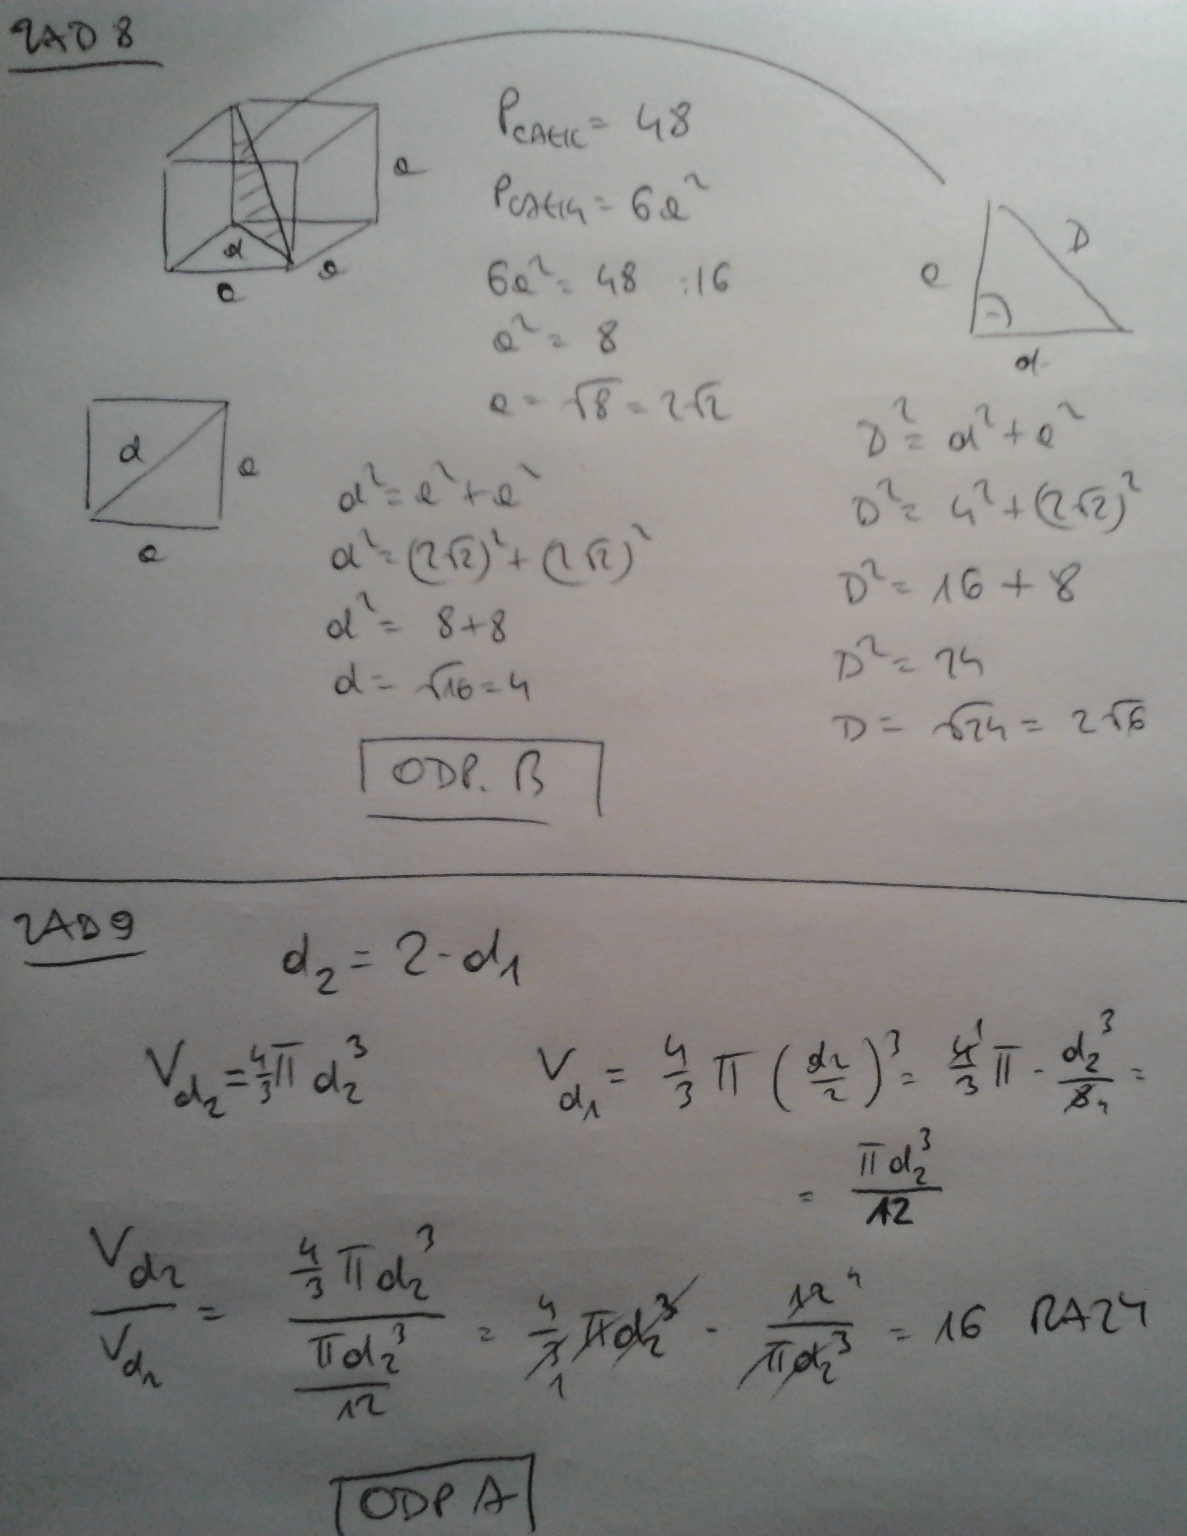 ZAD 8
P_CAŁK = 48
P_CAŁK = 6a²
6a² = 48 :16
a² = 8
a = √8 = 2√2
a
d
a
a
a
D
d
d
a
a
d² = a² + a²
d² = (2√2)² + (2√2)²
d² = 8+8
d = √16 = 4
D² = d² + a²
D² = 4² + (2√2)²
D² = 16 + 8
D² = 24
D = √24 = 2√6
ODP. B
ZAD 9
d₂ = 2·d₁
V_d₂ = 4/3 π d₂³
V_d₁ = 4/3 π (d₂/2)³ = 4¹/3 π · d₂³/8₂ =
= πd₂³/12
V_d₂/V_d₁ = (4/3 πd₂³)/(πd₂³/12) = 4/3₁ πd₂³ · 12⁴/πd₂³ = 16 RAZY
ODP A